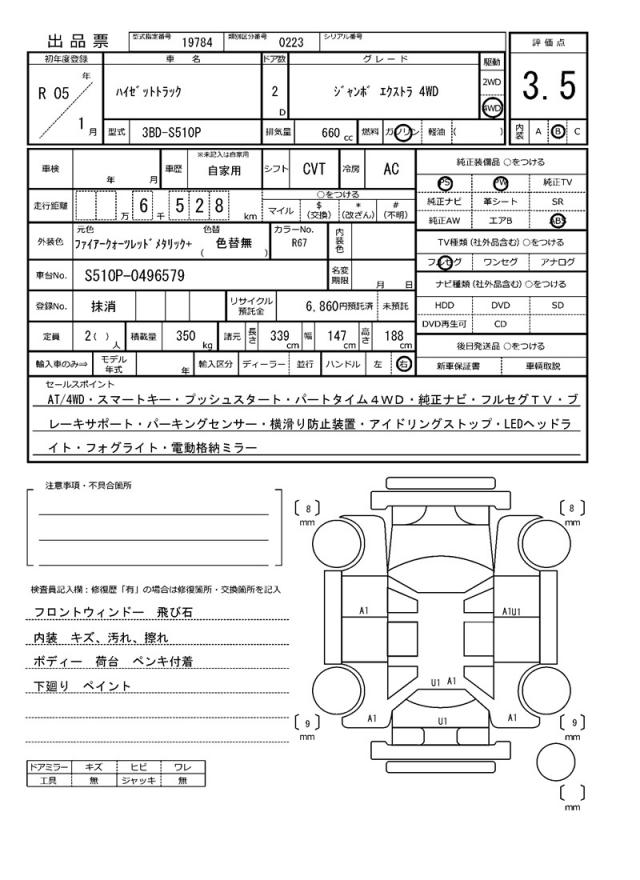 出品票
型式指定番号 19784 類別区分番号 0223 シリアル番号
評価点
3.5
初年度登録 車名 ドア数 グレード 駆動
R 05 年 1 月
ハイゼットトラック 2 D ジャンボ エクストラ 4WD
2WD
4WD
型式 3BD-S510P 排気量 660 cc 燃料 ガソリン 軽油 ( )
内装 A B C
車検 年 月 車歴 ※未記入は自家用 自家用 シフト CVT 冷房 AC
走行距離 万 6 千 5 2 8 km
○をつける
マイル $(交換) *(改ざん) #(不明)
外装色 元色 ファイアークォーツレッドメタリック+ 色替 ( 色替無 ) カラーNo. R67 内装色
車台No. S510P-0496579 名変期限 月 日
登録No. 抹消 リサイクル預託金 6,860円預託済 未預託
定員 2( )人 積載量 350 kg 諸元 長さ 339 cm 幅 147 cm 高さ 188 cm
輸入車のみ⇒ モデル年式 年 輸入区分 ディーラー 並行 ハンドル 左 右
純正装備品 ○をつける
PS PW 純正TV
純正ナビ 革シート SR
純正AW エアB ABS
TV種類(社外品含む)○をつける
フルセグ ワンセグ アナログ
ナビ種類(社外品含む)○をつける
HDD DVD SD
DVD再生可 CD
後日発送品 ○をつける
新車保証書 車輌取説
セールスポイント
AT/4WD・スマートキー・プッシュスタート・パートタイム4WD・純正ナビ・フルセグTV・ブ
レーキサポート・パーキングセンサー・横滑り防止装置・アイドリングストップ・LEDヘッドラ
イト・フォグライト・電動格納ミラー
注意事項・不具合箇所
検査員記入欄:修復歴「有」の場合は修復箇所・交換箇所を記入
フロントウィンドー 飛び石
内装 キズ、汚れ、擦れ
ボディー 荷台 ペンキ付着
下廻り ペイント
ドアミラー キズ ヒビ ワレ
工具 無 ジャッキ 無
[ 8 ] mm
[ 8 ] mm
A1
A1U1
U1 A1
A1
U1
A1
[ 9 ] mm
[ 9 ] mm
[ ] mm